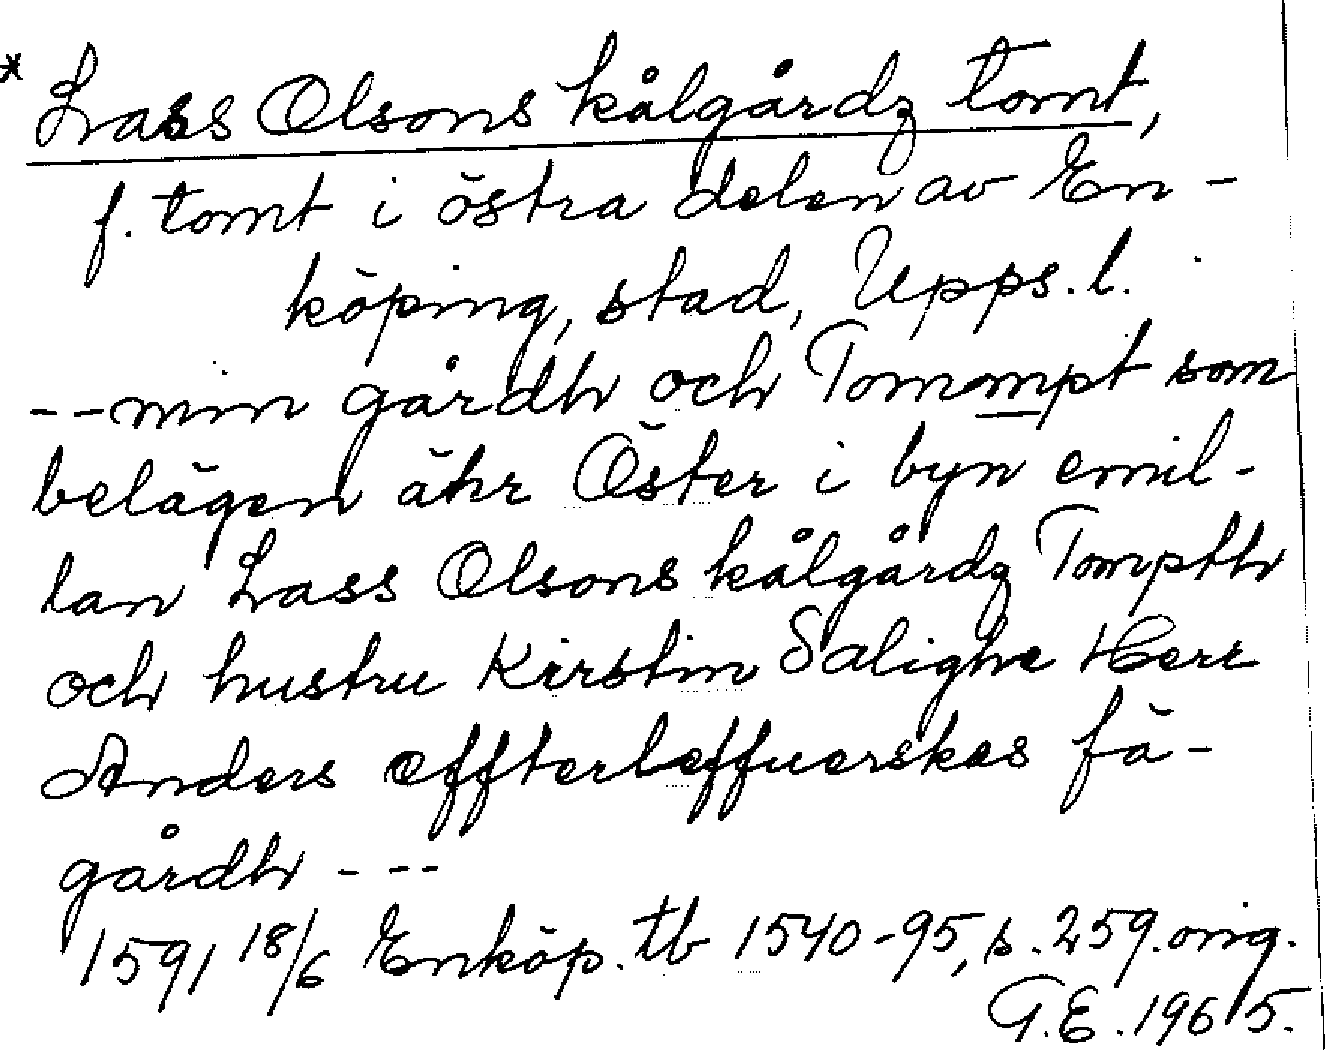 * Lass Olsons kålgårdz tomt,
f. tomt i östra delen av En-
köping, stad, Upps. l.
--min gårdh och Tomompt som
belägen ähr Öster i byn emil-
lan Lass Olsons kålgårdz Tompth
och hustru Kirstin Salighe Herr
Anders effterleffuerskes fä-
gårdh ---
1591 18/6 Enköp. tb 1540-95, s. 259. orig.
G.E. 1965.